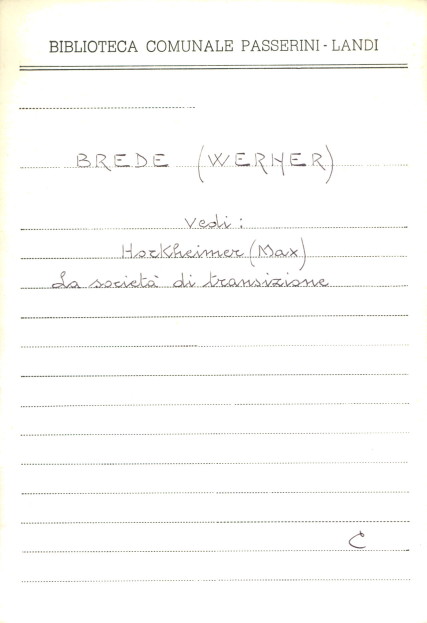 BIBLIOTECA COMUNALE PASSERINI-LANDI
BREDE (WERNER)
Vedi:
Horkheimer (Max)
La società di transizione
C